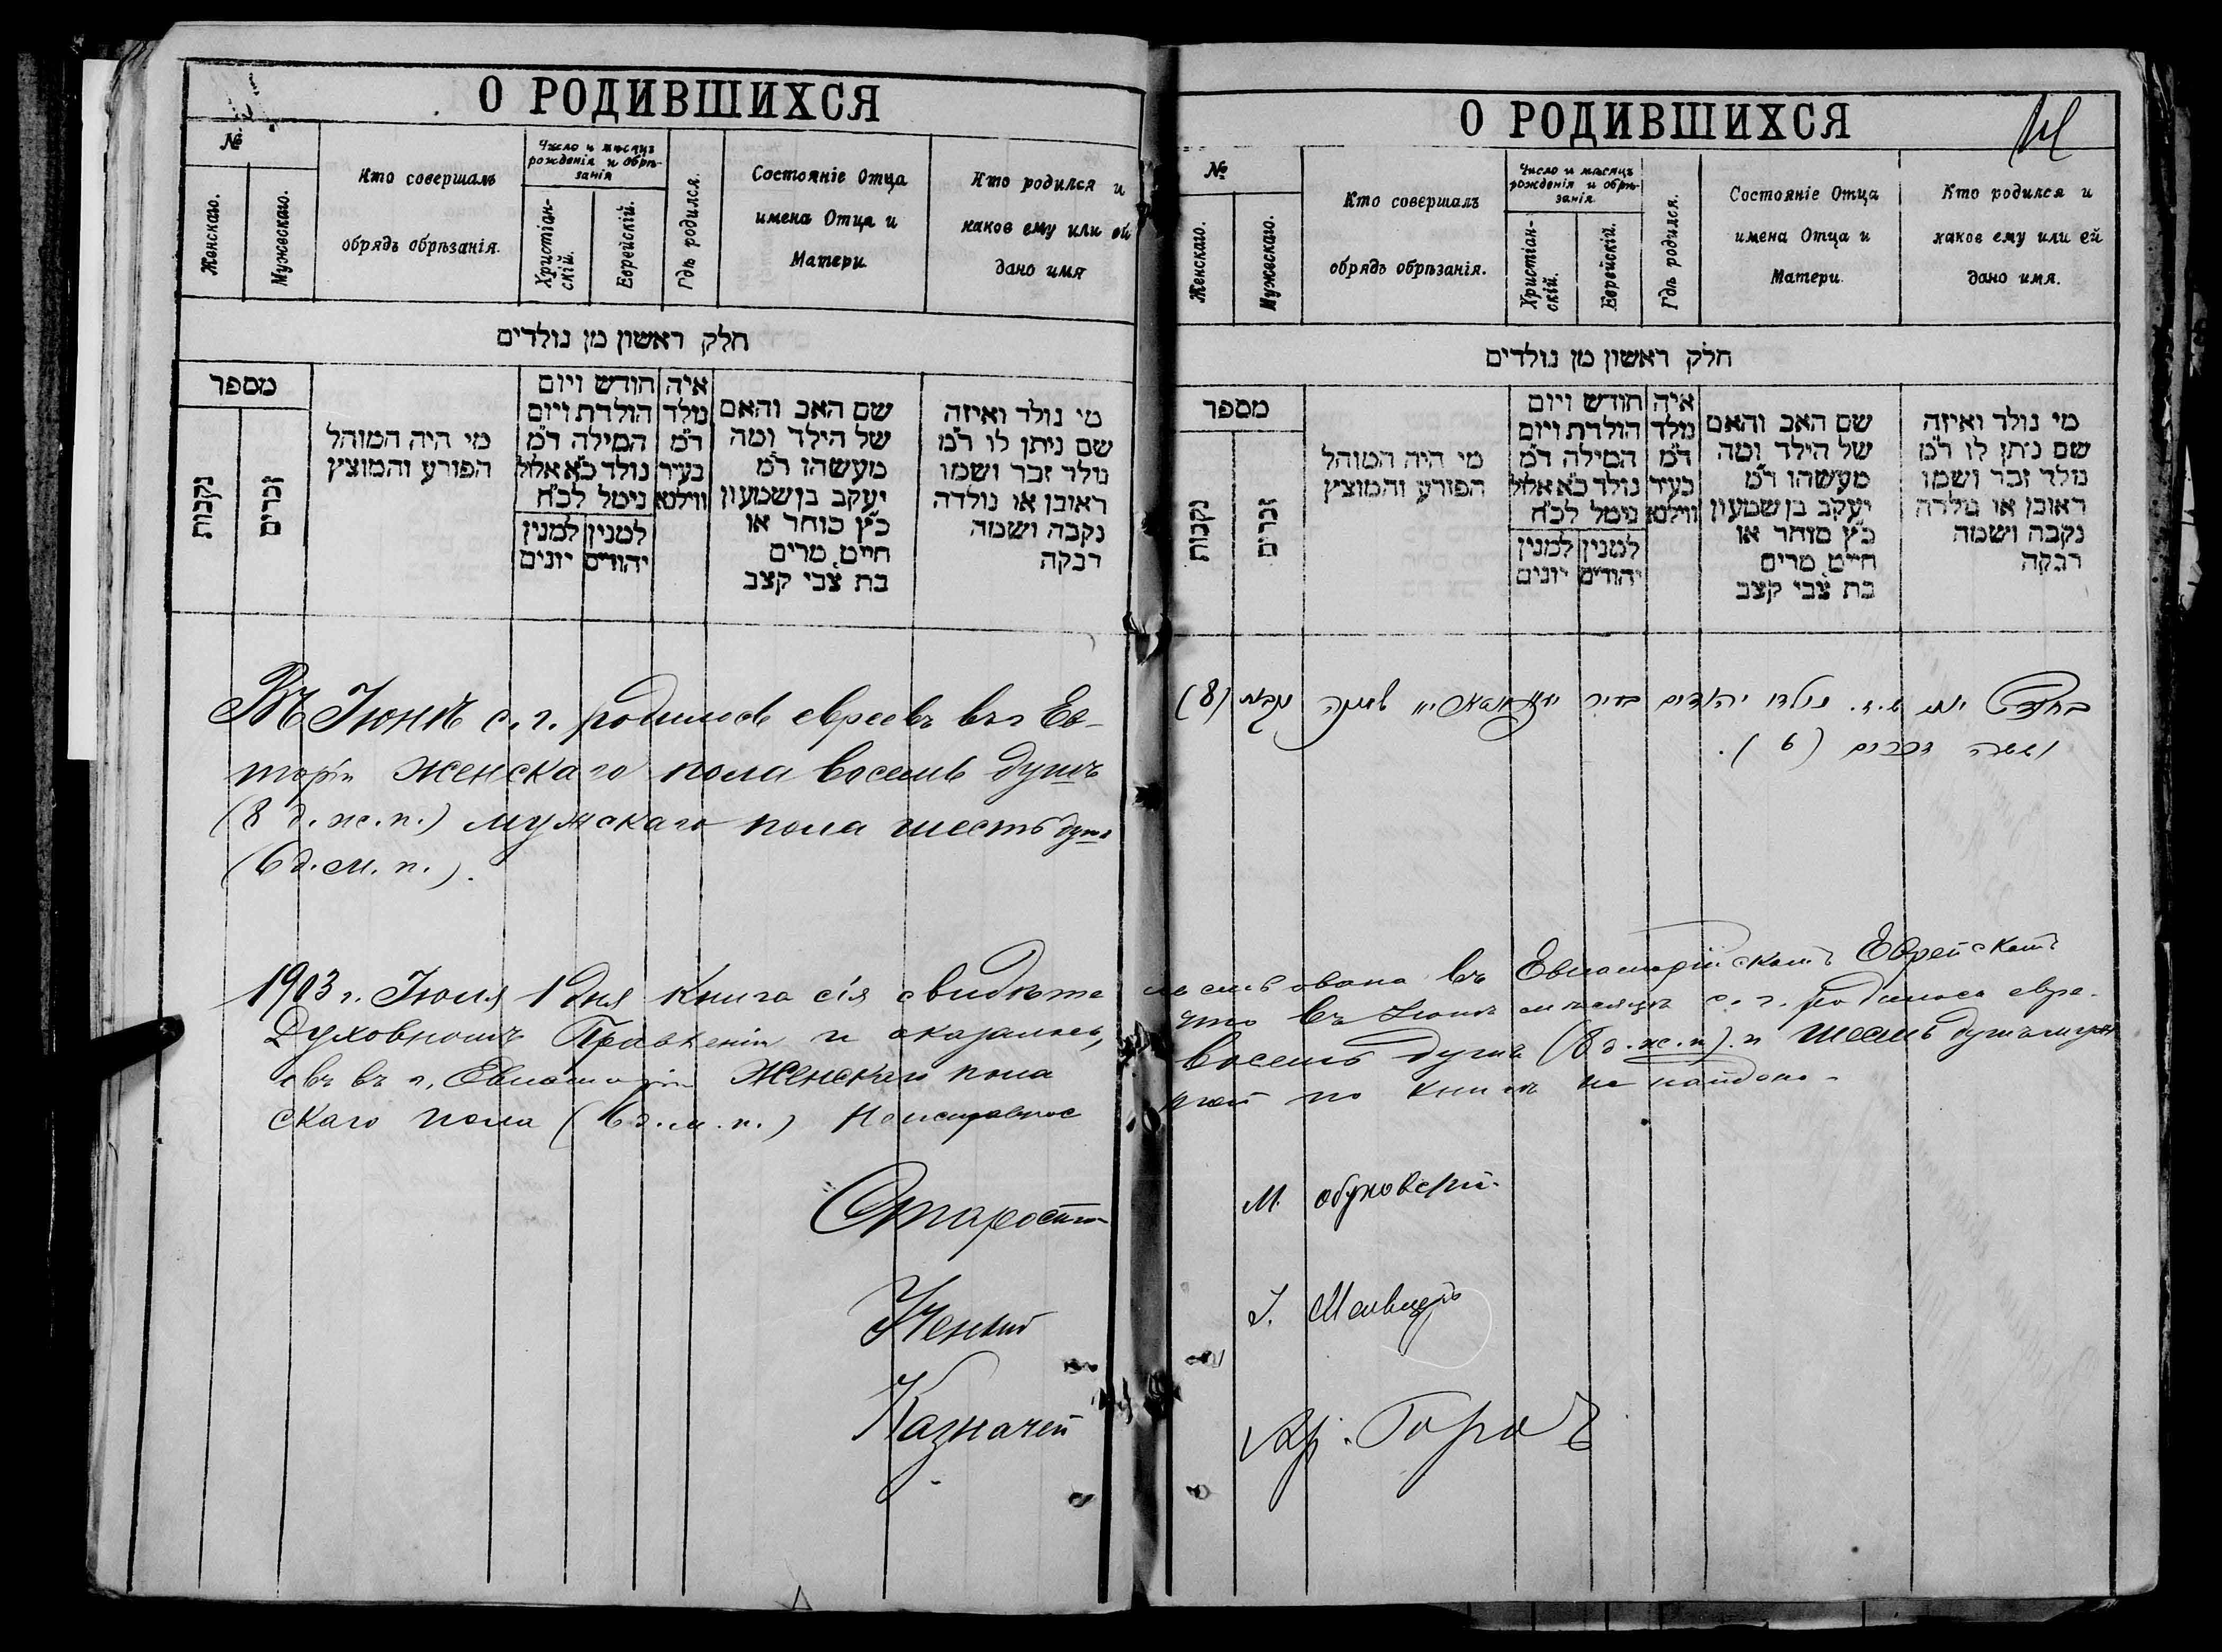 О РОДИВШИХСЯ
№
Женскаго.
Мужескаго.
Кто совершалъ
обрядъ обрѣзанія.
Число и мѣсяцъ
рожденія и обрѣ-
занія
Христіан-
скій.
Еврейскій.
Гдѣ родился.
Состояніе Отца
имена Отца и
Матери
Кто родился и
какое ему или ей
дано имя
חלק ראשון מן נולדים
מספר
נקבות
זכרים
מי היה המוהל
הפורע והמוצץ
חודש ויום
הולדת ויום
המילה ד"מ
נולד כ"א אלול
נימל לכ"ח
למנין למנין
יהודים יונים
איה
נולד
ד"מ
בעיר
ווילנא
שם האב והאם
של הילד ומה
מעשהו ד"מ
יעקב בן שמעון
כ"ץ סוחר או
חייט, מרים
בת צבי קצב
מי נולד ואיזה
שם ניתן לו ד"מ
נולד זכר ושמו
ראובן או נולדה
נקבה ושמה
רבקה
Въ Іюнѣ с. г. родилось евреевъ въ г Ев-
торіи женскаго пола восемь душъ
(8 д. ж. п.) мужскаго пола шесть душъ
(6 д. м. п.).
1903 г. Іюля 1 дня книга сія свидѣте
Духовномъ Правленіи и оказалось,
евъ въ г. Евпаторіи Женскаго пола
скаго пола (6 д. м. п.) Неисправнос
Староста
Ученый
Казначей
О РОДИВШИХСЯ
№
Женскаго.
Мужескаго.
Кто совершалъ
обрядъ обрѣзанія.
Число и мѣсяцъ
рожденія и обрѣ-
занія
Христіан-
скій.
Еврейскій.
Гдѣ родился.
Состояніе Отца
имена Отца и
Матери
Кто родился и
какое ему или ей
дано имя.
חלק ראשון מן נולדים
מספר
נקבות
זכרים
מי היה המוהל
הפורע והמוצץ
חודש ויום
הולדת ויום
המילה ד"מ
נולד כ"א אלול
נימל לכ"ח
למנין למנין
יהודים יונים
איה
נולד
ד"מ
בעיר
ווילנא
שם האב והאם
של הילד ומה
מעשהו ד"מ
יעקב בן שמעון
כ"ץ סוחר או
חייט, מרים
בת צבי קצב
מי נולד ואיזה
שם ניתן לו ד"מ
נולד זכר ושמו
ראובן או נולדה
נקבה ושמה
רבקה
בחודש יוני נולדו יהודים בעיר שמנה נקבות (8)
וששה זכרים (6).
льствована въ Евпаторійскомъ Еврейскомъ
что въ Іюнѣ мѣсяцѣ с. г. родилось евре-
восемь душъ (8 д. ж. п.) и шесть душъ муж
тей по книгѣ не найдено-
М.
І.